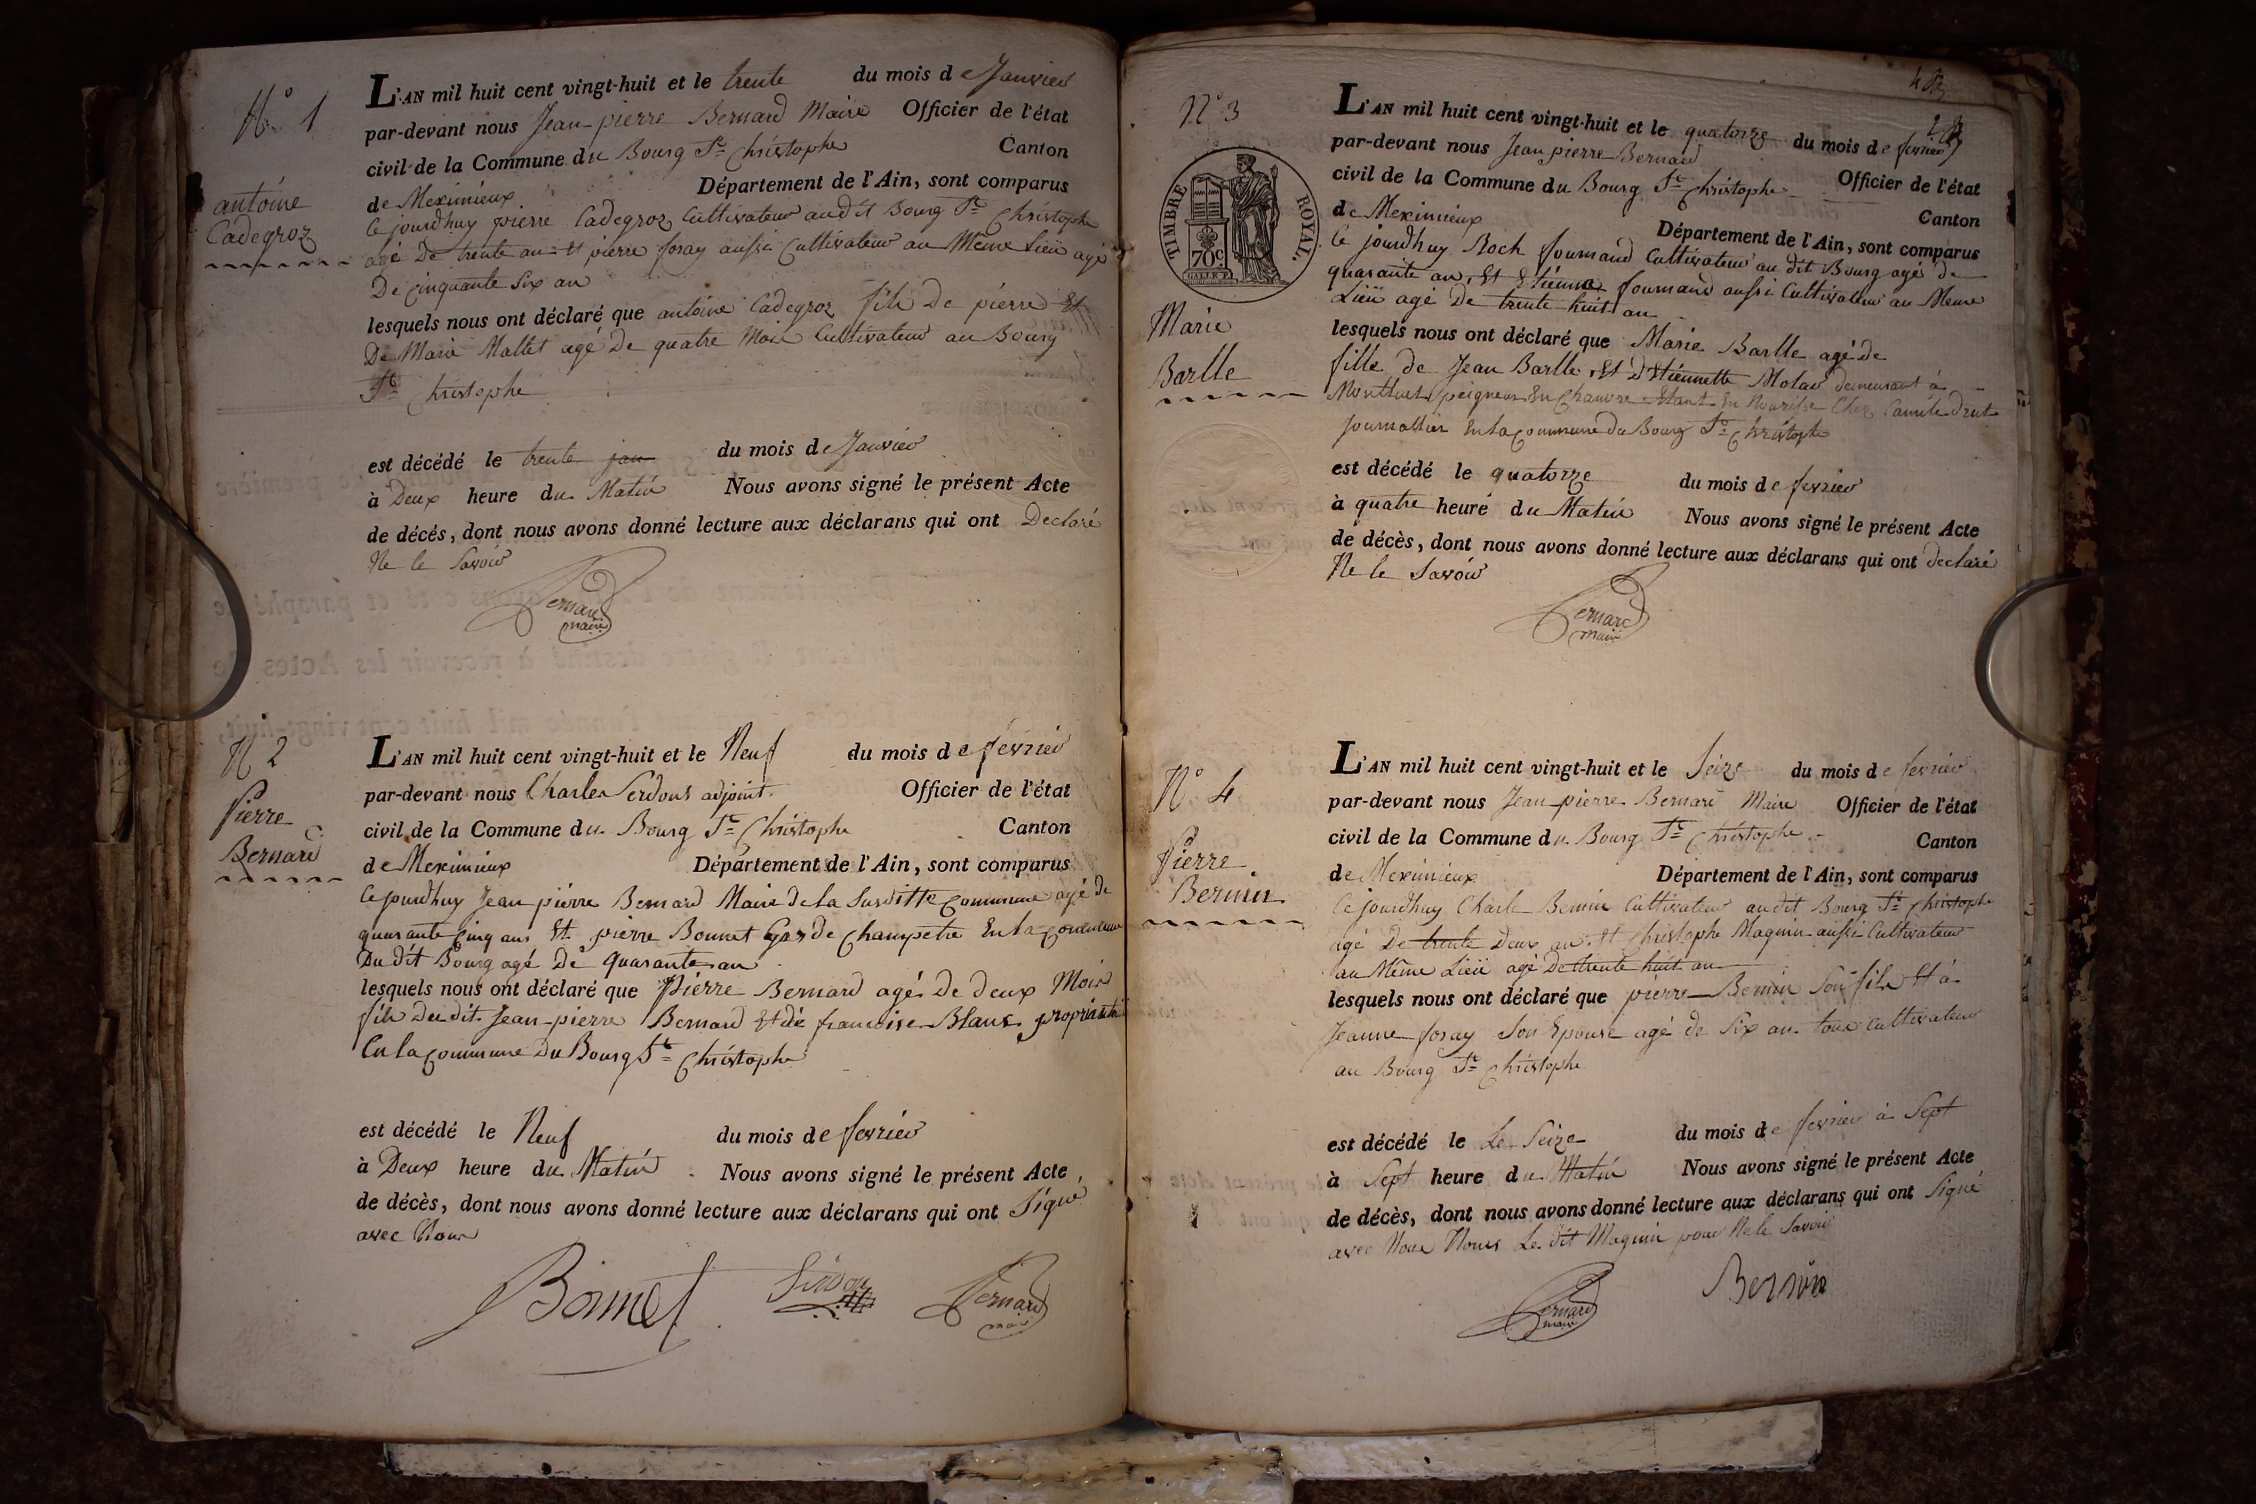 N° 1
antoine
Cadegroz
L'AN mil huit cent vingt-huit et le trente du mois de Janvier
par-devant nous Jean-pierre Bernard Maire Officier de l'état
civil de la Commune du Bourg St Christophe Canton
de Meximieux Département de l'Ain, sont comparus
Ce jourdhuy pierre Cadegroz Cultivateur audit Bourg St Christophe
agé De trente an Et pierre foray aussi Cultivateur au Meme Lieu agé
De Cinquante Six an
lesquels nous ont déclaré que antoine Cadegroz fils De pierre Et
De Marie Mallet agé De quatre Mois Cultivateur au Bourg
St Christophe
est décédé le trente jan du mois de Janvier
à Deux heure du Matin Nous avons signé le présent Acte
de décés, dont nous avons donné lecture aux déclarans qui ont Declaré
Ne le Savoir
Bernard
maire
N 2
Pierre
Bernard
L'AN mil huit cent vingt-huit et le Neuf du mois de fevrier
par-devant nous Charles Serdous adjoint Officier de l'état
civil de la Commune du Bourg St Christophe Canton
de Meximieux Département de l'Ain, sont comparus
Ce jourdhuy Jean pierre Bernard Maire de la Susditte Commune agé de
quarante Cinq ans Et pierre Bonnet Garde Champetre En la Commune
Du dit Bourg agé De quarante an
lesquels nous ont déclaré que Pierre Bernard agé De deux Mois
fils du dit Jean-pierre Bernard Et de francoise Blanc propriaitaire
En la Commune Du Bourg St Christophe
est décédé le Neuf du mois de fevrier
à Deux heure du Matin Nous avons signé le présent Acte
de décès, dont nous avons donné lecture aux déclarans qui ont Signé
avec Nous
Bonnet Serdou Bernard
maire
N° 3
TIMBRE ROYAL
70c.
Marie
Barlle
L'AN mil huit cent vingt-huit et le quatorze du mois de fevrier
par-devant nous Jean pierre Bernard Officier de l'état
civil de la Commune du Bourg St Christophe Canton
de Meximieux Département de l'Ain, sont comparus
Ce jourdhuy Roch fournand Cultivateur au dit Bourg agé de
quarante an Et Etienne fournand aussi Cultivateur au Meme
Lieu agé De trente huit an
lesquels nous ont déclaré que Marie Barlle agé de
fille de Jean Barlle Et d'Etiennette Molar demeurant à
Montluel peigneur En Chanvre Etant En Nourisse Chez Camile Drut
Journallier En la Commune du Bourg St Christophe
est décédé le quatorze du mois de fevrier
à quatre heure du Matin Nous avons signé le présent Acte
de décès, dont nous avons donné lecture aux déclarans qui ont declaré
Ne le Savoir
Bernard
maire
N° 4
Pierre
Bernin
L'AN mil huit cent vingt-huit et le Seize du mois de fevrier
par-devant nous Jean-pierre Bernard Maire Officier de l'état
civil de la Commune du Bourg St Christophe Canton
de Meximieux Département de l'Ain, sont comparus
Ce jourdhuy Charle Bernin Cultivateur audit Bourg St Christophe
agé De trente Deux an Et Christophe Magnin aussi Cultivateur
au Même Lieu agé De trente huit an
lesquels nous ont déclaré que pierre Bernin Son fils Et à
Jeanne foray Son Epouse agé de Six an tous Cultivateur
au Bourg St Christophe
est décédé le Le Seize du mois de fevrier à Sept
à Sept heure du Matin Nous avons signé le présent Acte
de décès, dont nous avons donné lecture aux déclarans qui ont Signé
avec Nous Nous Le dit Magnin pour Ne le Savoir
Bernard
maire
Bernin